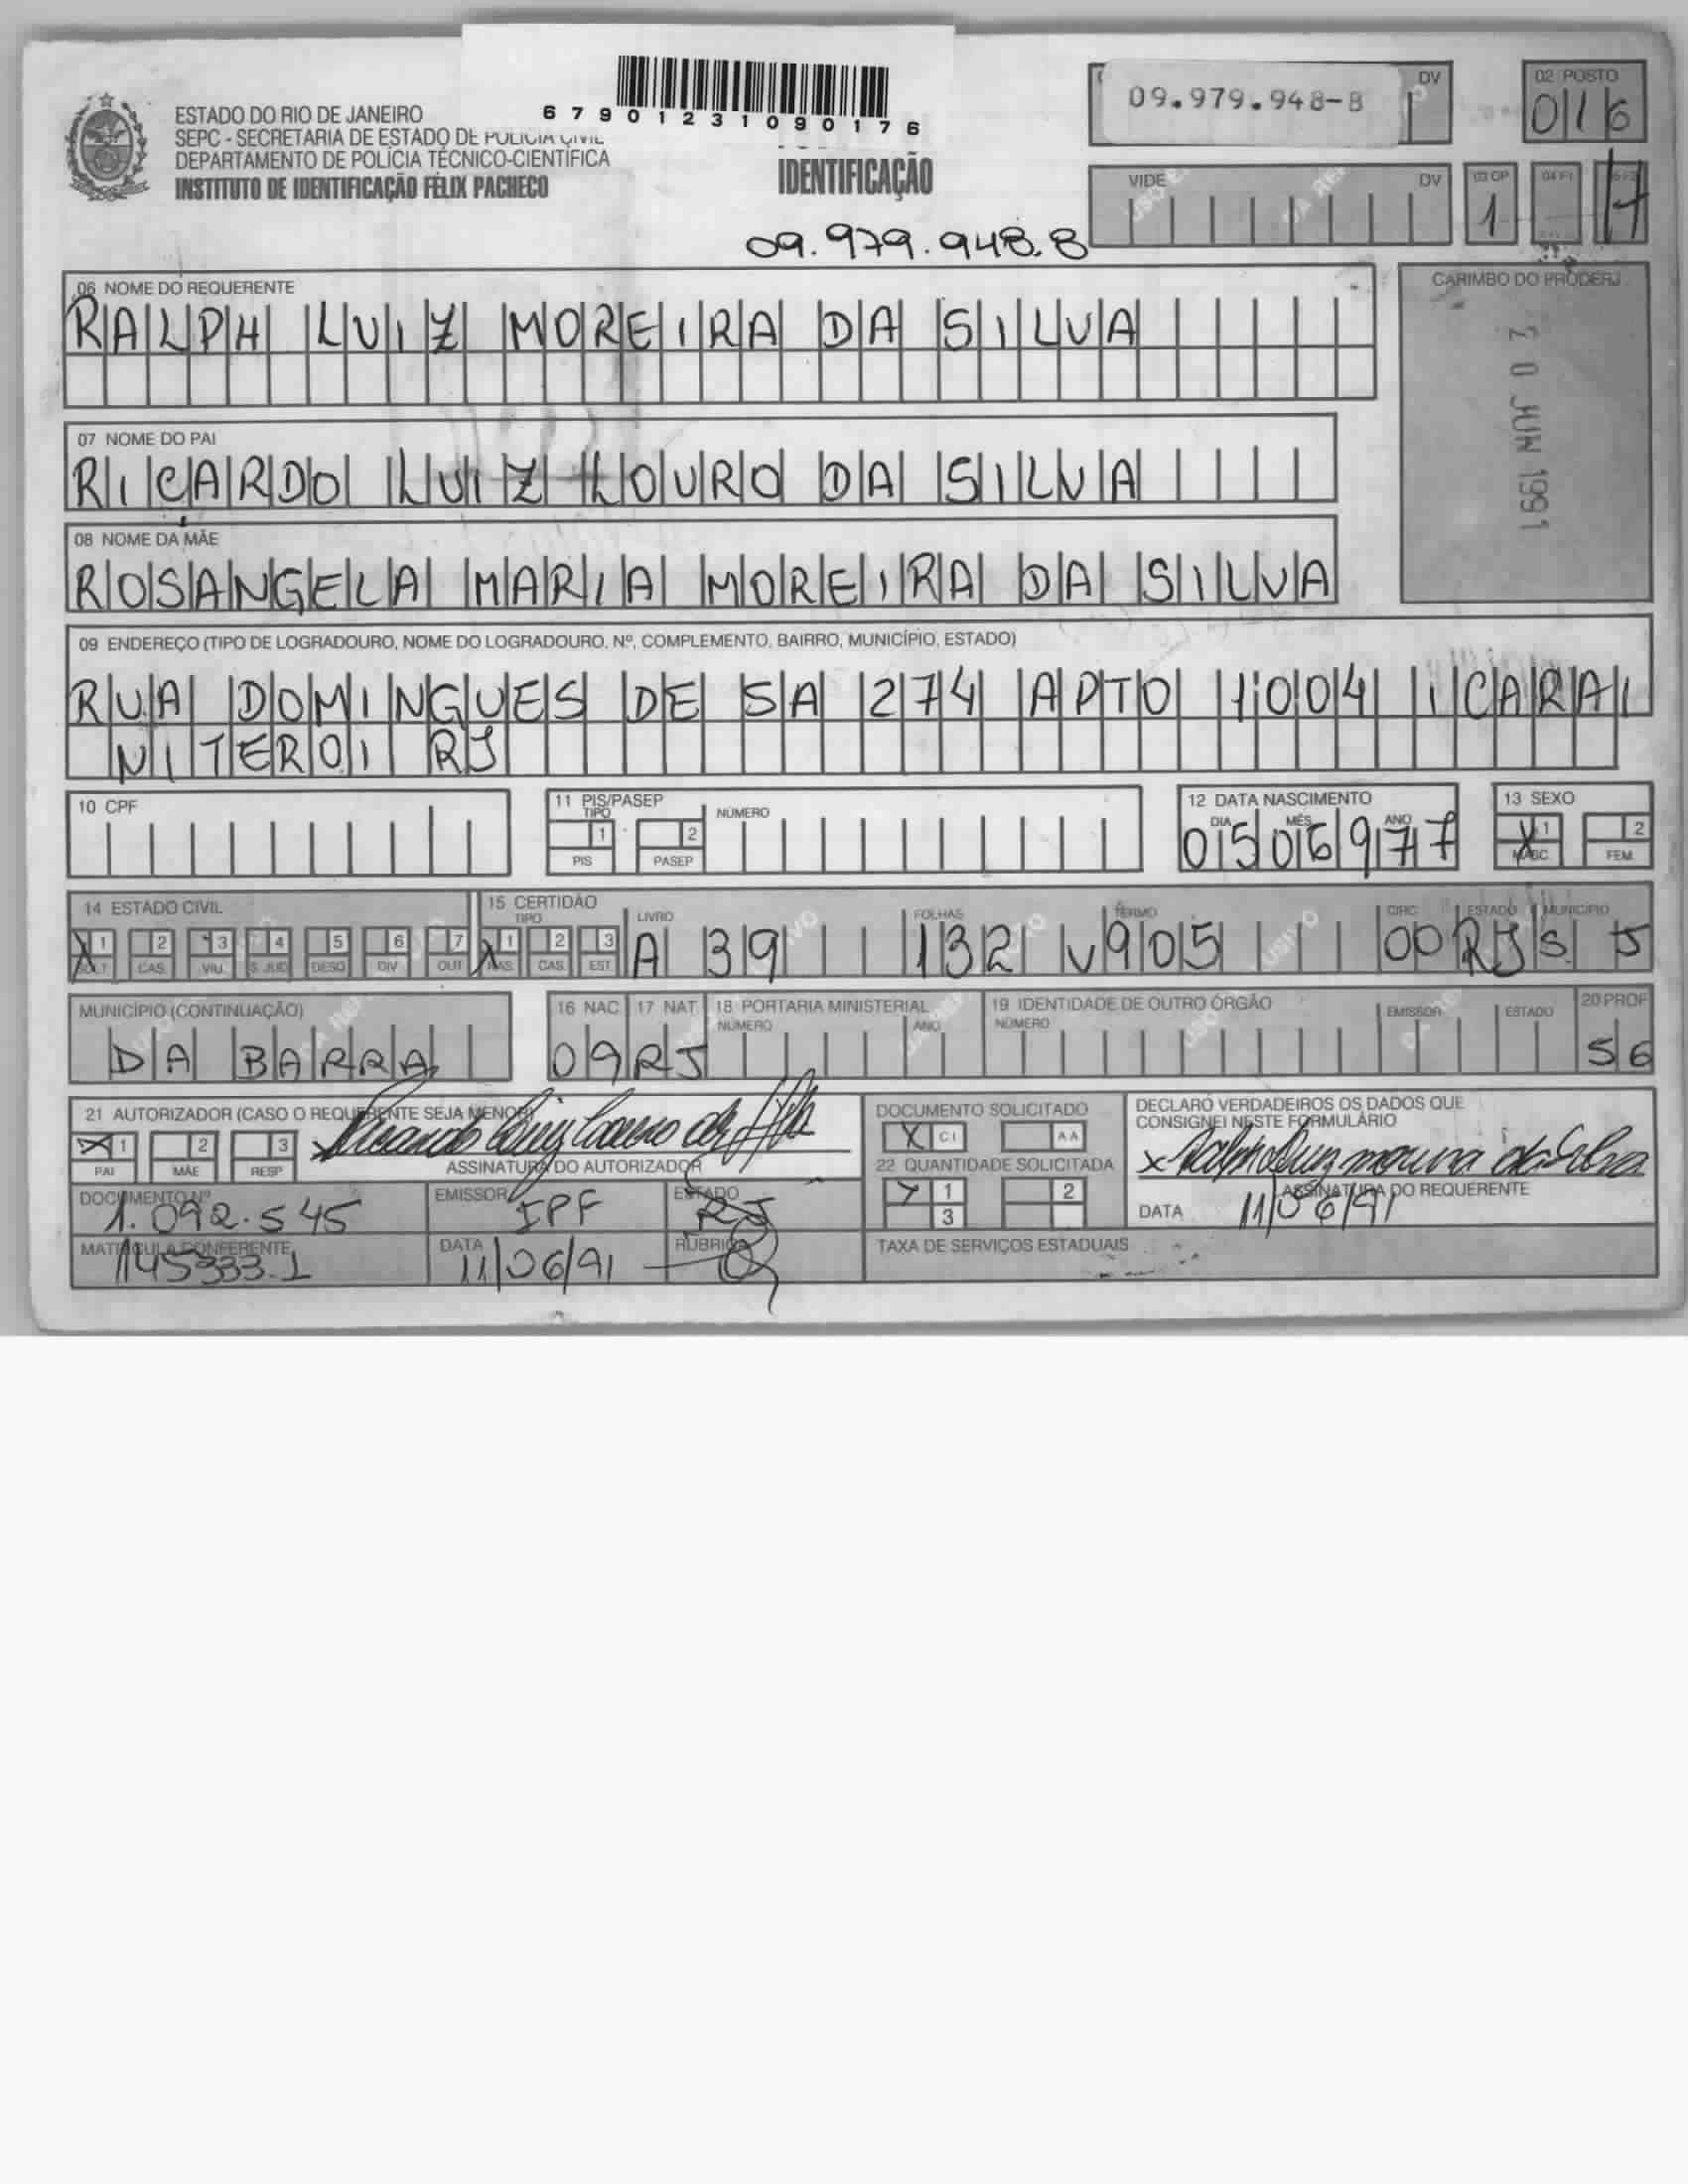 6790123109 0176
ESTADO DO RIO DE JANEIRO
SEPC - SECRETARIA DE ESTADO DE POLICIA CIVIL
DEPARTAMENTO DE POLÍCIA TÉCNICO-CIENTÍFICA
INSTITUTO DE IDENTIFICAÇÃO FÉLIX PACHECO
IDENTIFICAÇÃO
09.979.948.8
09.979.948-8 DV
02 POSTO
016
VIDE DV
03 OP
1
04 F1
7
06 NOME DO REQUERENTE
RALPH LUIZ MOREIRA DA SILVA
CARIMBO DO PRODERJ
JUN 1991
07 NOME DO PAI
RICARDO LUIZ LOURO DA SILVA
08 NOME DA MÃE
ROSANGELA MARIA MOREIRA DA SILVA
09 ENDEREÇO (TIPO DE LOGRADOURO, NOME DO LOGRADOURO, Nº, COMPLEMENTO, BAIRRO, MUNICÍPIO, ESTADO)
RUA DOMINGUES DE SA 274 APTO 1004 ICARAI
NITEROI RJ
10 CPF
11 PIS/PASEP
TIPO NÚMERO
1 2
PIS PASEP
12 DATA NASCIMENTO
DIA MÊS ANO
0506977
13 SEXO
X 1 2
MASC. FEM.
14 ESTADO CIVIL
X 1 2 3 4 5 6 7
SOLT. CAS. VIU. S.JUD DESQ DIV OUT
15 CERTIDÃO
TIPO LIVRO FOLHAS TERMO CIRC ESTADO MUNICÍPIO
X 1 2 3 A 39 132 V905 00 RJ S J
NAS. CAS. EST.
MUNICÍPIO (CONTINUAÇÃO)
DA BARRA
16 NAC
09
17 NAT.
RJ
18 PORTARIA MINISTERIAL
NÚMERO ANO
19 IDENTIDADE DE OUTRO ÓRGÃO
NÚMERO EMISSOR ESTADO
20 PROF
56
21 AUTORIZADOR (CASO O REQUERENTE SEJA MENOR)
X 1 2 3
PAI MÃE RESP
x Ricardo Luiz Louro da Silva
ASSINATURA DO AUTORIZADOR
DOCUMENTO Nº EMISSOR ESTADO
1.092.545 IPF RJ
MATRÍCULA CONFERENTE DATA RÚBRICA
145333.1 11/06/91
DOCUMENTO SOLICITADO
X C I A A
22 QUANTIDADE SOLICITADA
X 1 2
3
TAXA DE SERVIÇOS ESTADUAIS
DECLARO VERDADEIROS OS DADOS QUE
CONSIGNEI NESTE FORMULÁRIO
x Ralph Luiz Moreira da Silva
ASSINATURA DO REQUERENTE
DATA 11/06/91